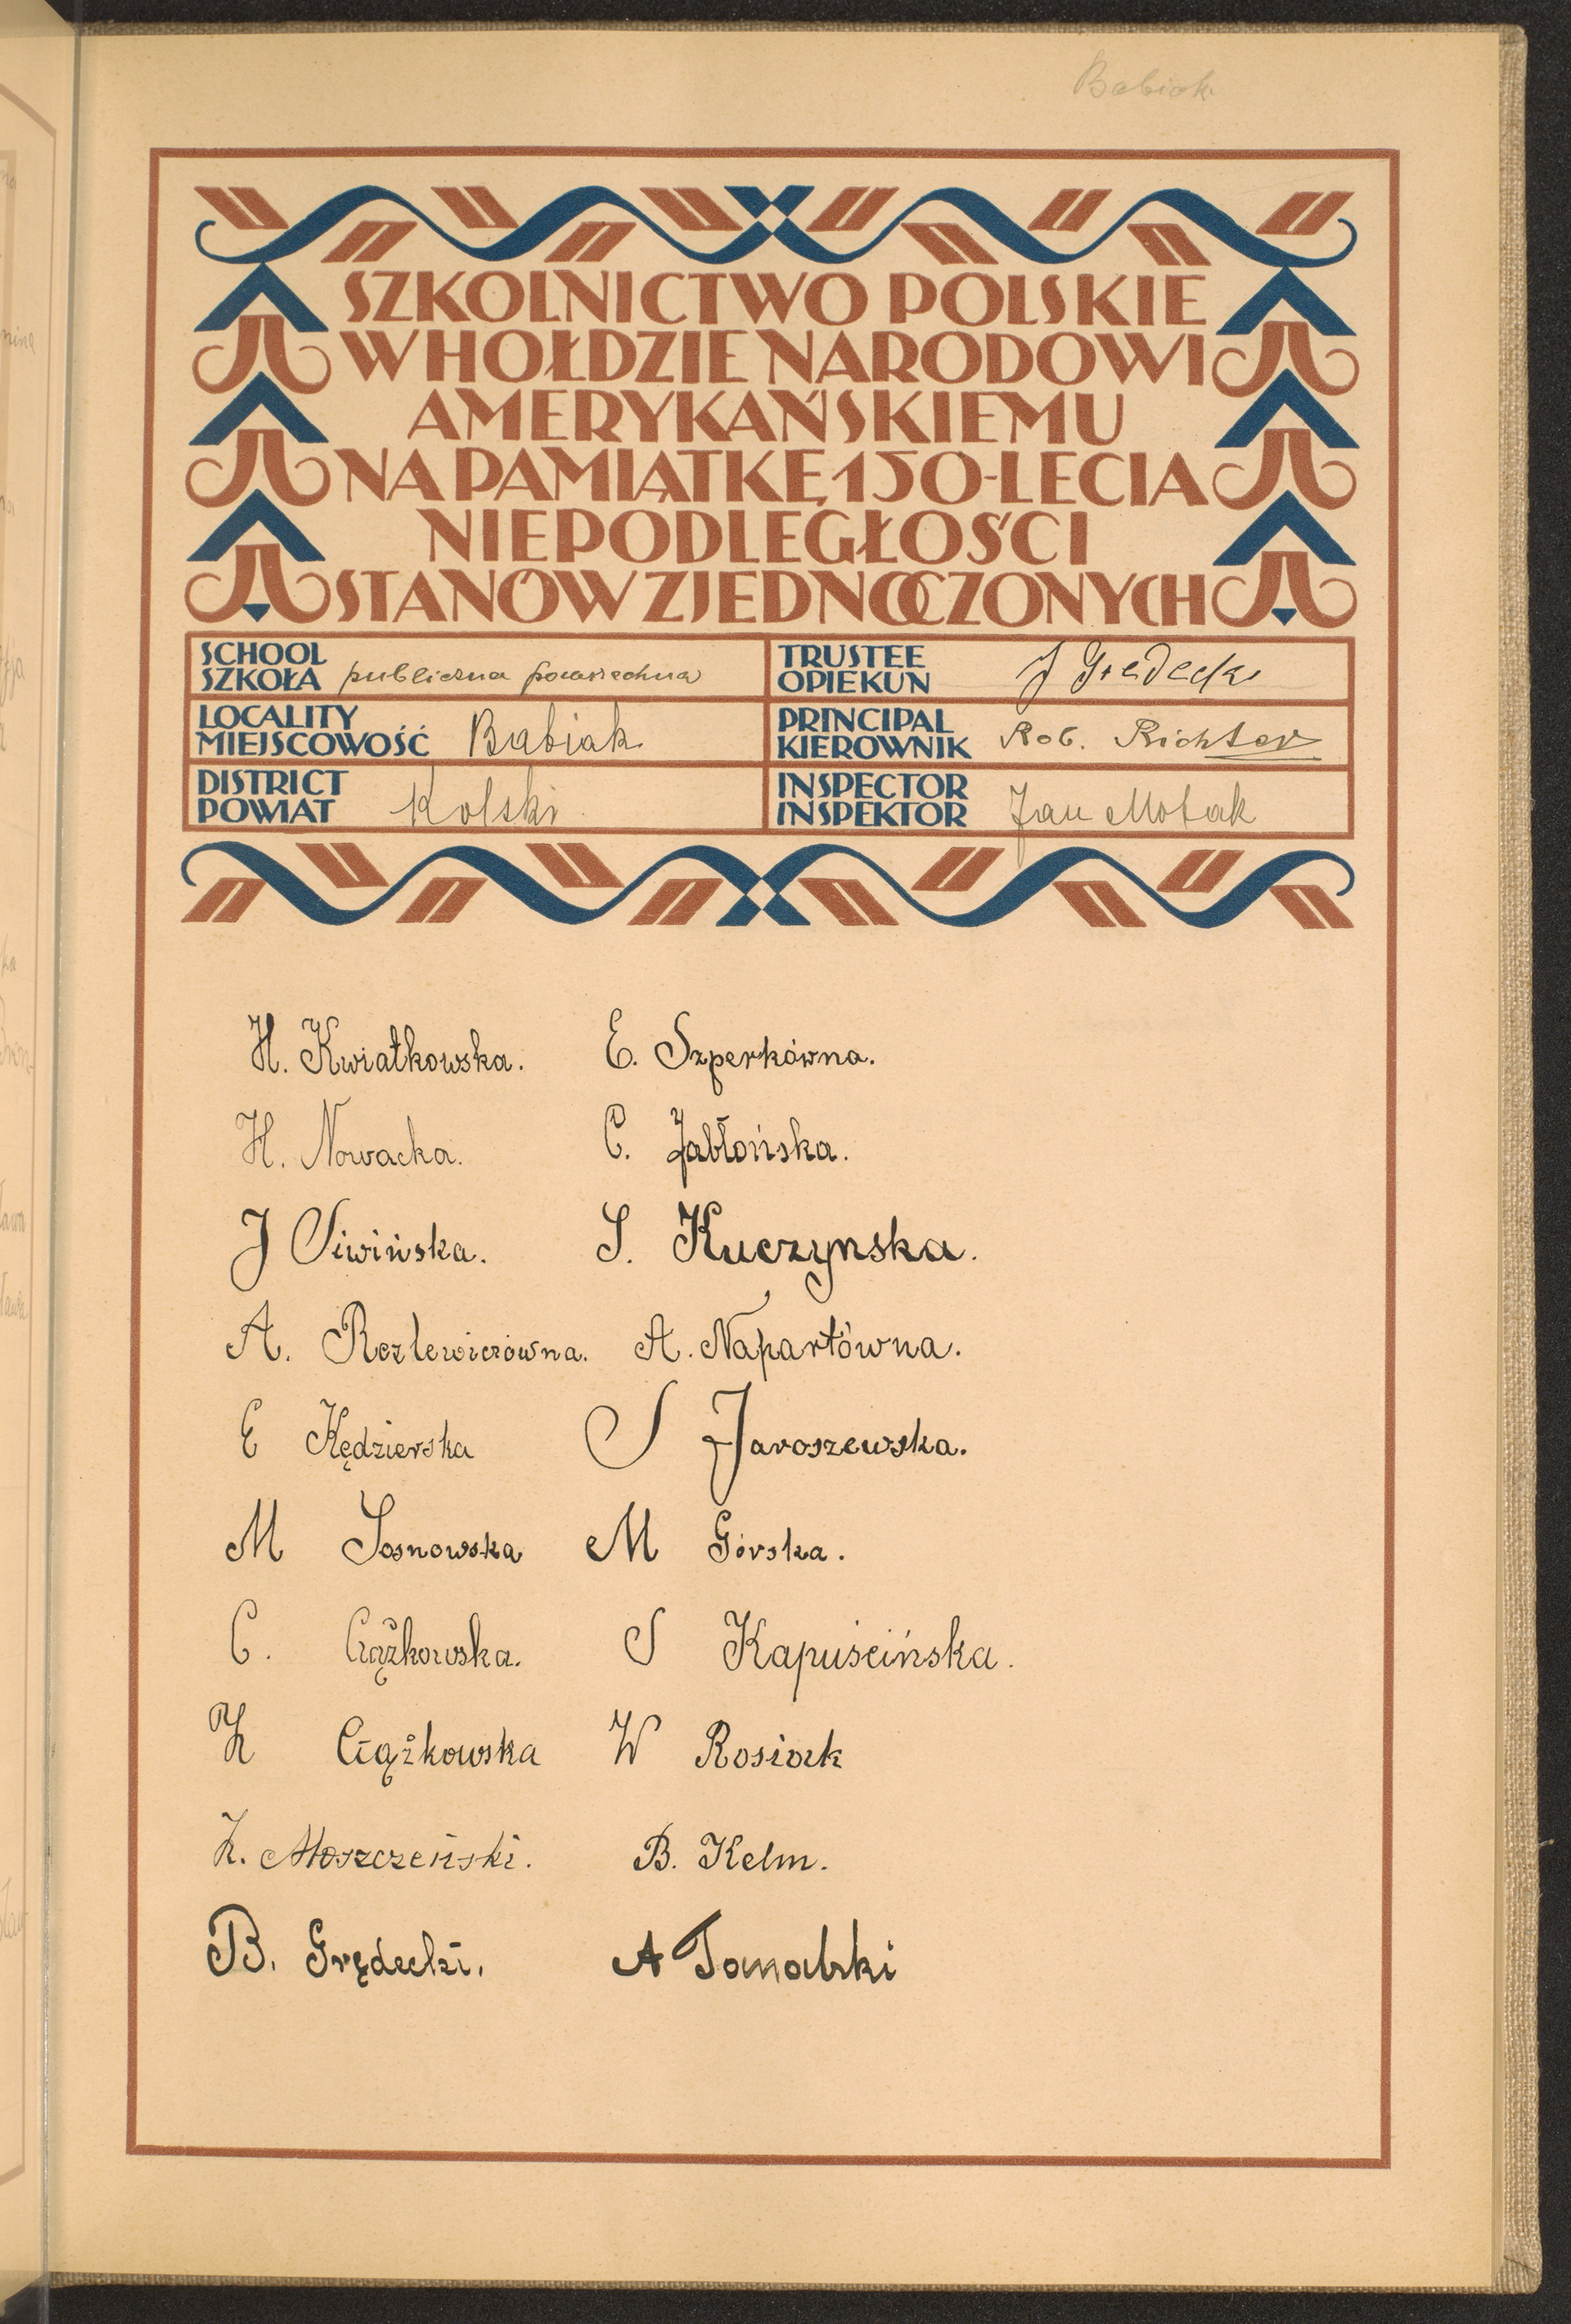 Babiak
SZKOLNICTWO POLSKIE
W HOŁDZIE NARODOWI
AMERYKAŃSKIEMU
NA PAMIĄTKĘ 150-LECIA
NIEPODLEGŁOŚCI
STANÓW ZJEDNOCZONYCH
SCHOOL
SZKOŁA publiczna powszechna
TRUSTEE
OPIEKUN J Grędecki
LOCALITY
MIEJSCOWOŚĆ Babiak
PRINCIPAL
KIEROWNIK Rob. Richter
DISTRICT
POWIAT Kolski
INSPECTOR
INSPEKTOR Jan Motak
H. Kwiatkowska. E. Szperkówna.
H. Nowacka. C. Jabłońska.
J Siwińska. S. Kuczynska.
A. Rezlewiczówna. A. Napartówna.
E Kędzierska S Jaroszewska.
M Sosnowska M Górska.
C. Ciążkowska. S Kapuścińska.
Z Ciążkowska W Rosiak
Z. Moszczeński. B. Kelm.
B. Grędecki. A